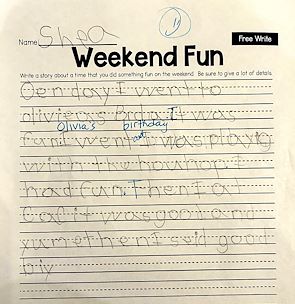 Free Write
Name Shea
Weekend Fun
Write a story about a time that you did something fun on the weekend. Be sure to give a lot of details.
Oen day I went to
olivieas Brday It was
Olivia's birthday
fun I went was playing
with the I
had fun. Then I at
Cac it was good and
yume then I seid good
biy